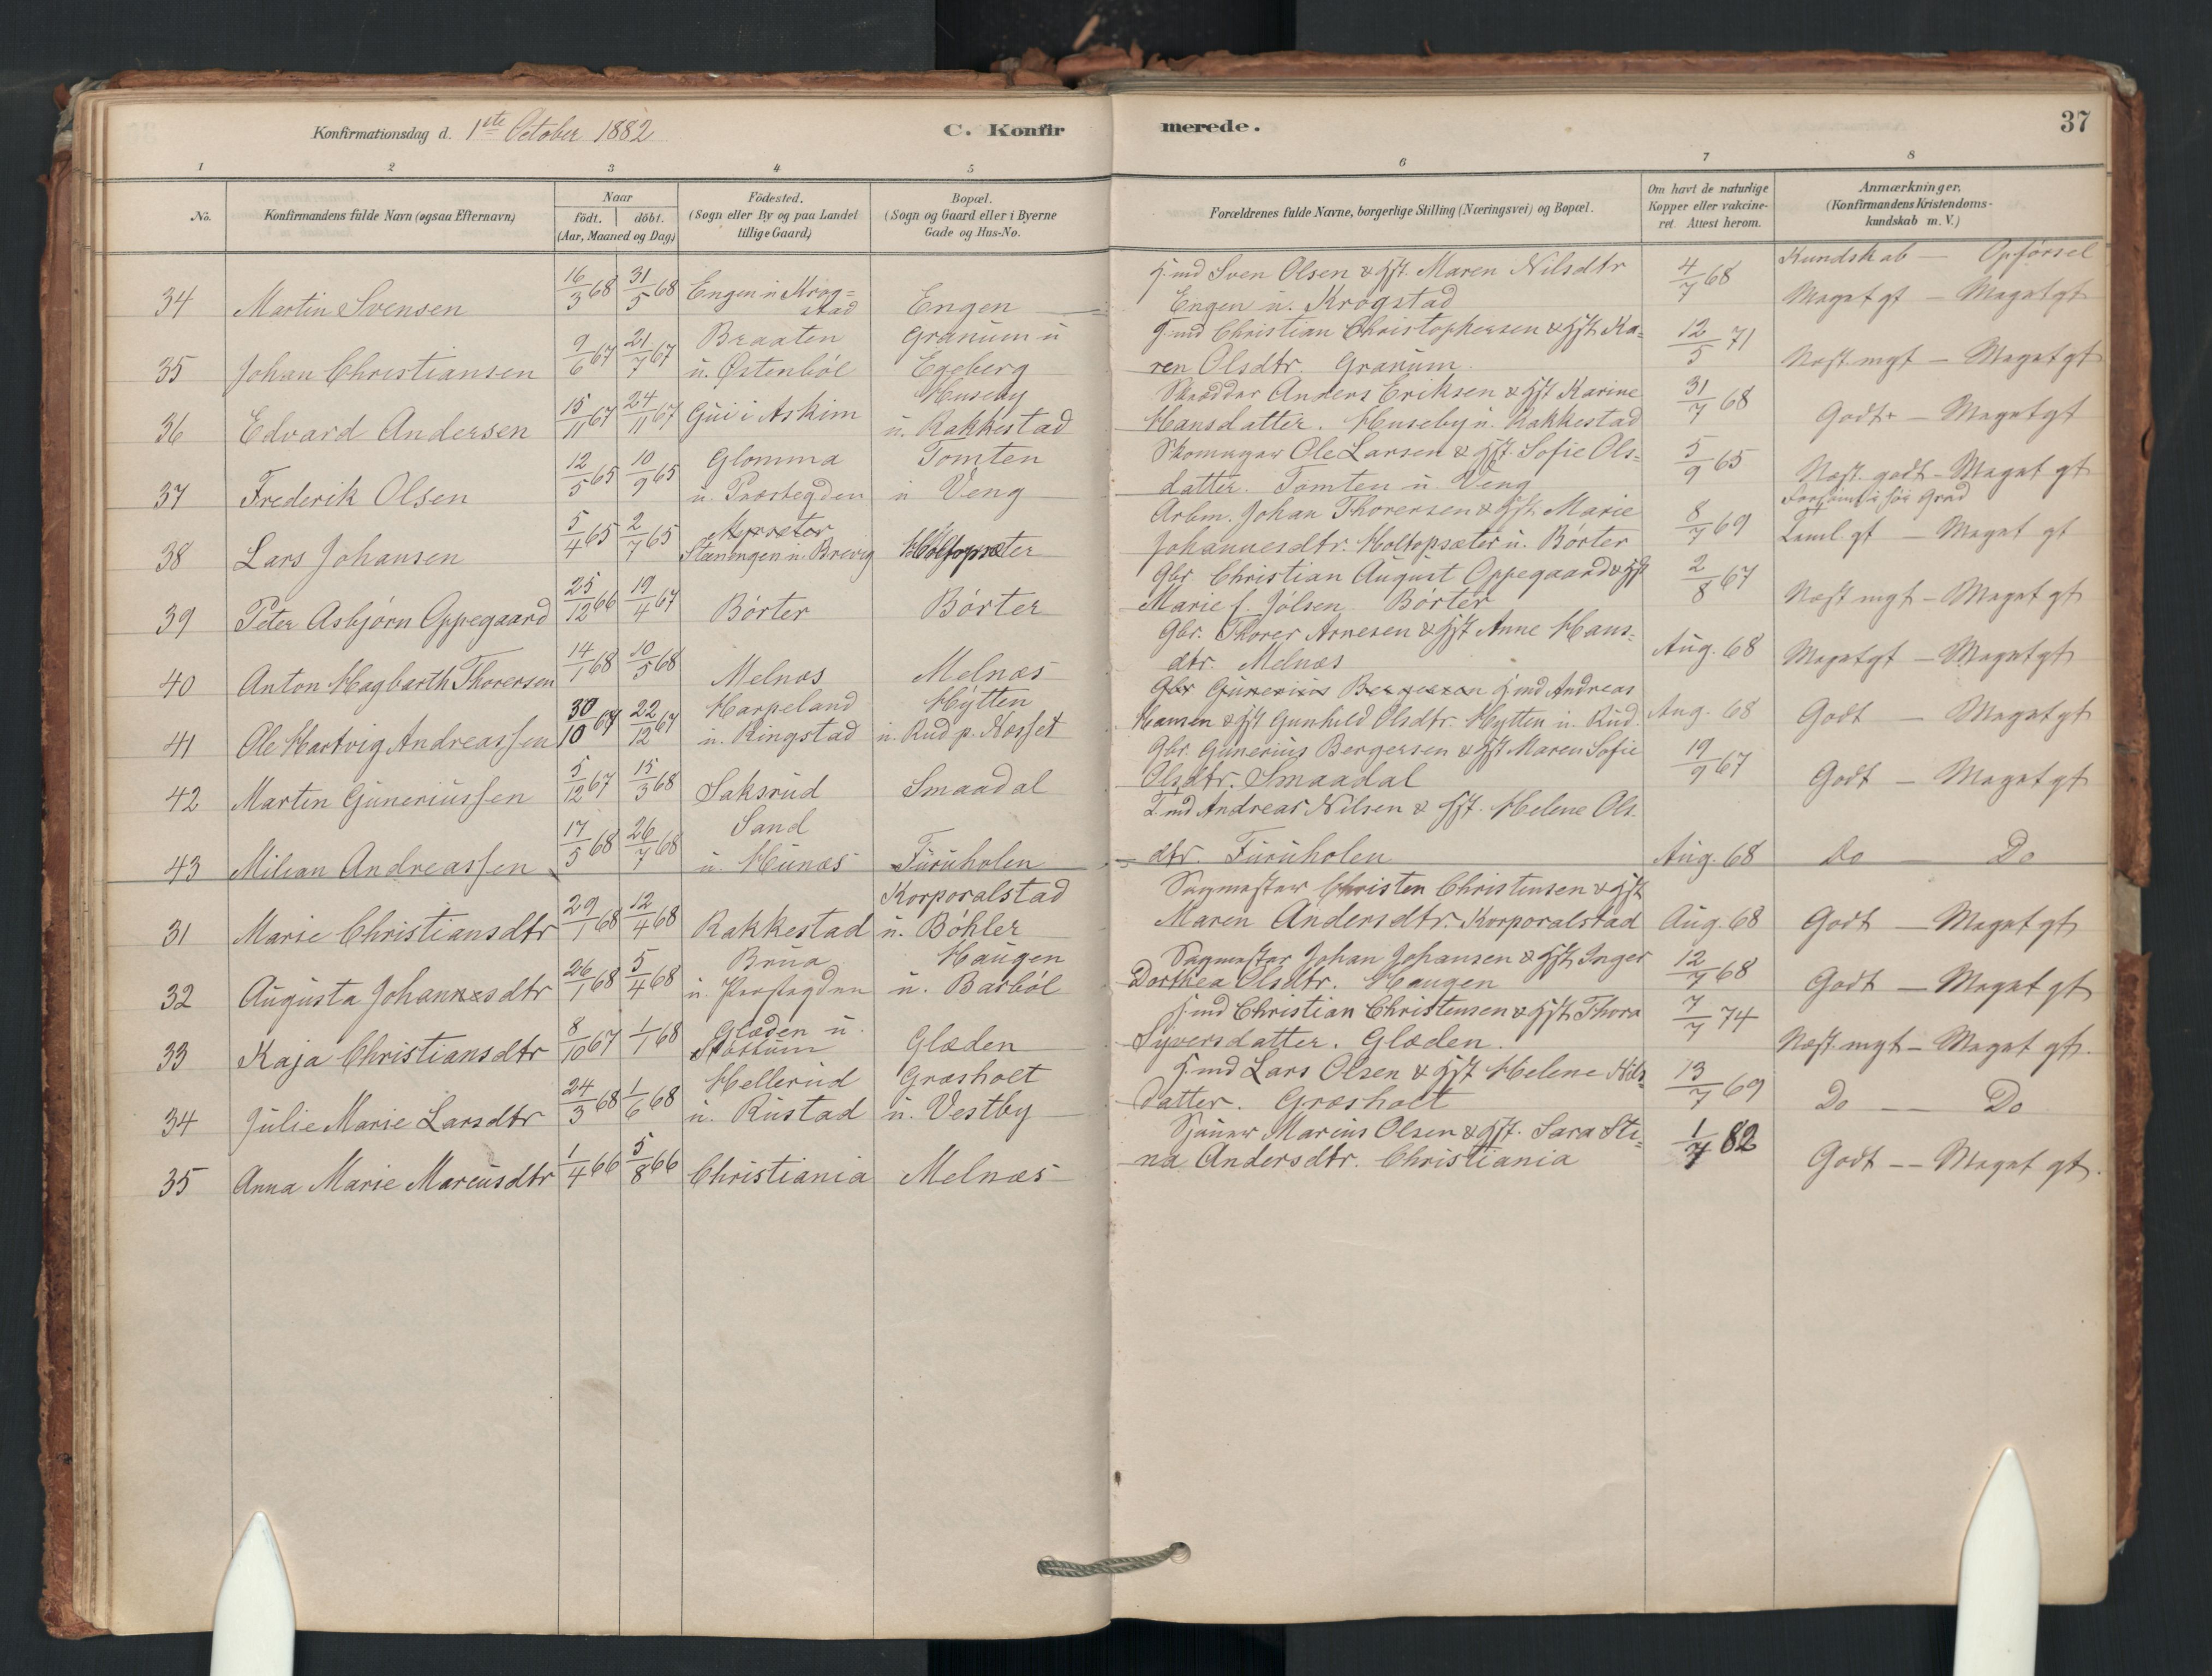 Konfirmationsdag d. 1ste October 1882
C. Konfirmerede.
37
1 2 3 4 5 6 7 8
No.
Konfirmandens fulde Navn (ogsaa Efternavn)
Naar
födt. döbt.
(Aar, Maaned og Dag)
Födested.
(Sogn eller By og paa Landet
tillige Gaard)
Bopæl.
(Sogn og Gaard eller i Byerne
Gade og Hus-No.
Forældrenes fulde Navne, borgerlige Stilling (Næringsvei) og Bopæl.
Om havt de naturlige
Kopper eller vakcine-
ret. Attest herom.
Anmærkninger.
(Konfirmandens Kristendoms-
kundskab m. V.)
Kundskab — Opførsel
34 Martin Svensen 16/3 68 31/5 68 Engen u Krog=
stad Engen
H.md Sven Olsen & Hst. Maren Nilsdtr
Engen u. Krogstad 4/7 68 Meget gt — Meget gt
35 Johan Christiansen 9/6 67 21/7 67 Braaten
u. Østenböl Granum u
Egeberg
G.md Christian Christophersen & Hst. Ka=
ren Olsdtr. Granum. 12/5 71 Næst mgt — Meget gt
36 Edvard Andersen 15/11 67 24/11 67 Gui i Askim Huseby
u. Rakkestad
Skrædder Anders Eriksen & Hst Karine
Hansdatter. Huseby u. Rakkestad 31/7 68 Godt — Meget gt
37 Frederik Olsen 12/5 65 10/9 65 Glomma
u. Præstegden Tomten
u Veng
Skomager Ole Larsen & Hst. Sofie Ols=
datter. Tomten u Veng 5/9 65 Næst godt — Meget gt
38 Lars Johansen 5/4 65 2/7 65
Stæningen u. Brevig Holtopsæter
Arbm. Johan Thorersen & Hst. Marie
Johannesdtr. Holtopsæter u. Börter 8/7 69 Forsømt i høi Grad
Teml. gt — Meget gt
39 Peter Asbjørn Oppegaard 25/12 66 19/4 67 Börter Börter
Gbr. Christian August Oppegaard & Hst
Marie f. Jölsen Börter 2/8 67 Næst mgt — Meget gt
40 Anton Hagbarth Thorersen 14/1 68 10/5 68 Melnæs Melnæs
Gbr. Thorer Arnesen & Hst Anne Hans=
dtr. Melnæs Aug. 68 Meget gt — Meget gt
41 Ole Hartvig Andreassen 30/10 67 22/12 67 Harpeland
u. Ringstad Hytten
u. Rud p. Næsset
Gbr Gunerius Bergersen H.md Andreas
Hansen & Hst Gunhild Olsdtr. Hytten u. Rud Aug. 68 Godt — Meget gt
42 Martin Guneriussen 5/12 67 15/3 68 Saksrud Smaadal
Gbr. Gunerius Bergersen & Hst Maren Sofie
Olsdtr. Smaadal 19/9 67 Godt — Meget gt
43 Milian Andreassen 17/5 68 26/7 68 Sand
u. Hunæs Furuholen
I.md Andreas Nilsen & Hst. Helene Ols.
dtr. Furuholen Aug. 68 Do — Do
31 Marie Christiansdtr 29/1 68 12/4 68 Rakkestad Korporalstad
u. Böhler
Sagmester Christen Christensen & Hst
Maren Andersdtr. Korporalstad Aug. 68 Godt — Meget gt
32 Augusta Johannesdtr 26/1 68 5/4 68 Brua
u. Præstegden Haugen
u. Basböl
Sagmester Johan Johansen & Hst Inger
Dorthea Olsdtr. Haugen 12/7 68 Godt — Meget gt
33 Kaja Christiansdtr 8/10 67 1/1 68 Glæden u.
Stottum Glæden
H.md Christian Christensen & Hst Thora
Syversdatter. Glæden. 7/7 74 Næst. mgt — Meget gt.
34 Julie Marie Larsdtr 24/3 68 1/6 68 Hellerud
u. Rustad Græsholt
u. Vestby
H.md Lars Olsen & Hst Helene Nils=
datter. Græsholt 13/7 69 Do — Do
35 Anna Marie Marcusdtr 1/4 66 5/8 66 Christiania Melnæs
Sjauer Marius Olsen & Hst. Sara Sti=
na Andersdtr. Christiania 1/7 82 Godt — Meget gt.